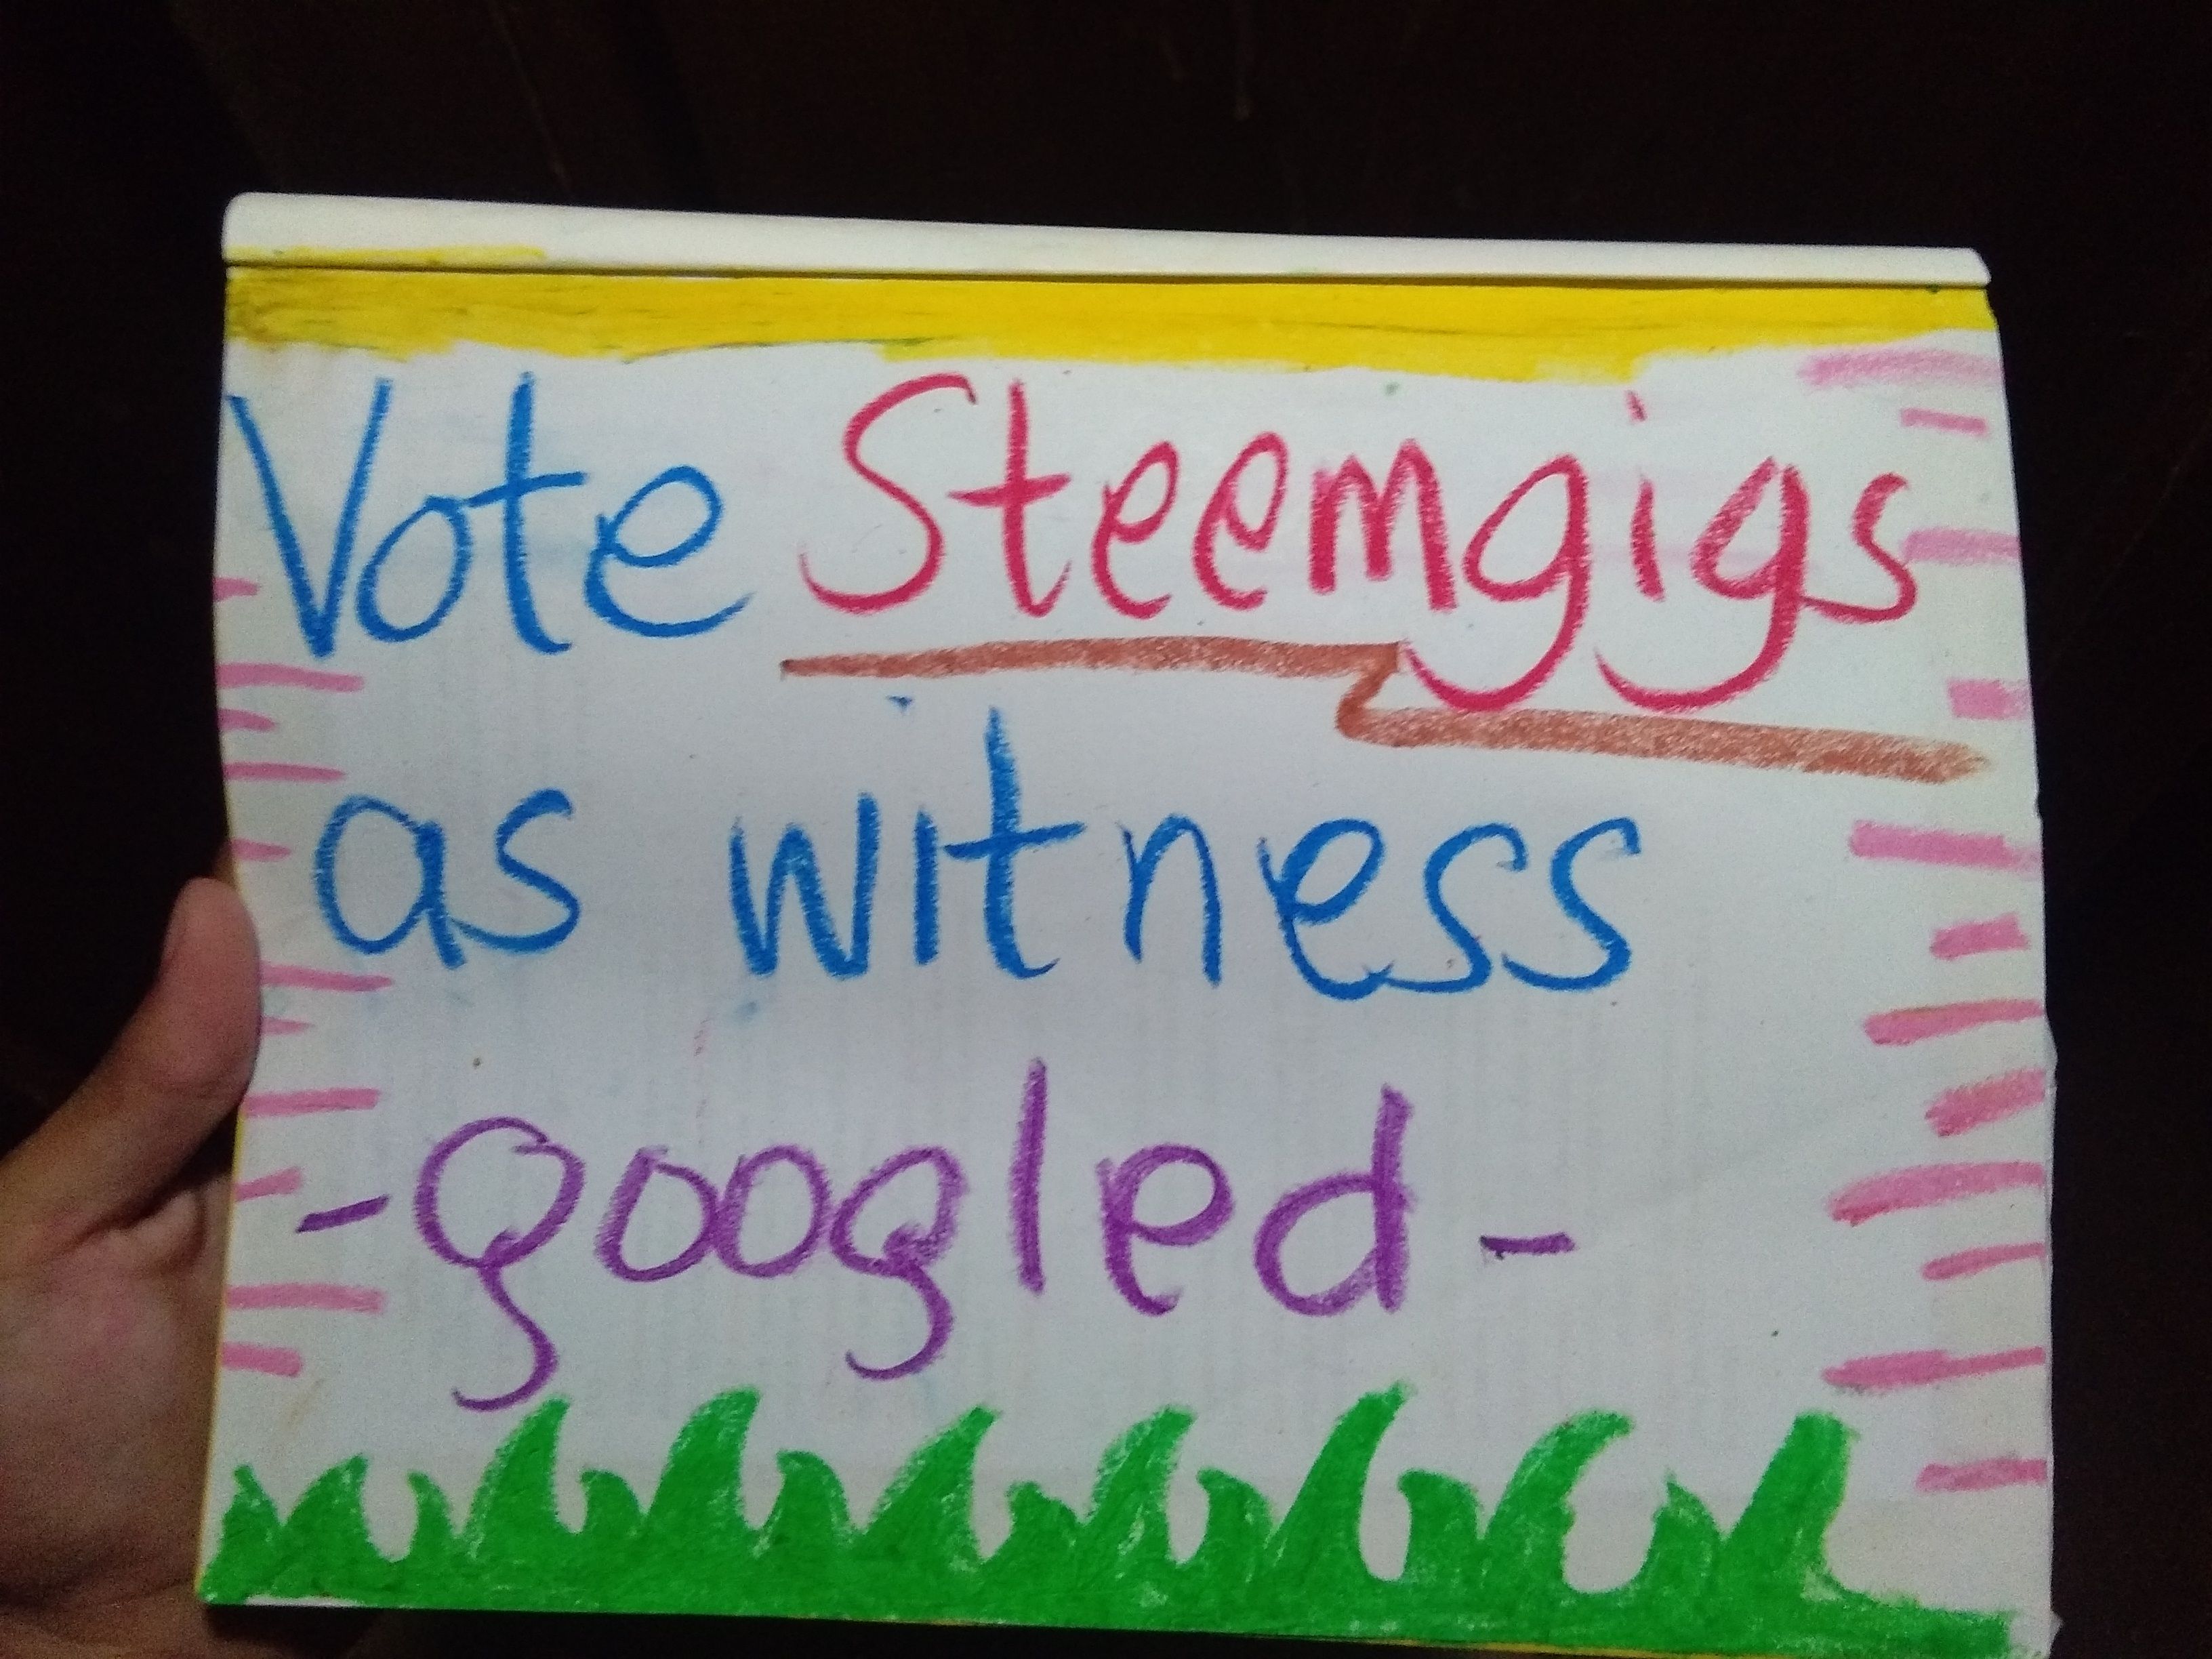 Vote Steemgigs
as witness
-googled-